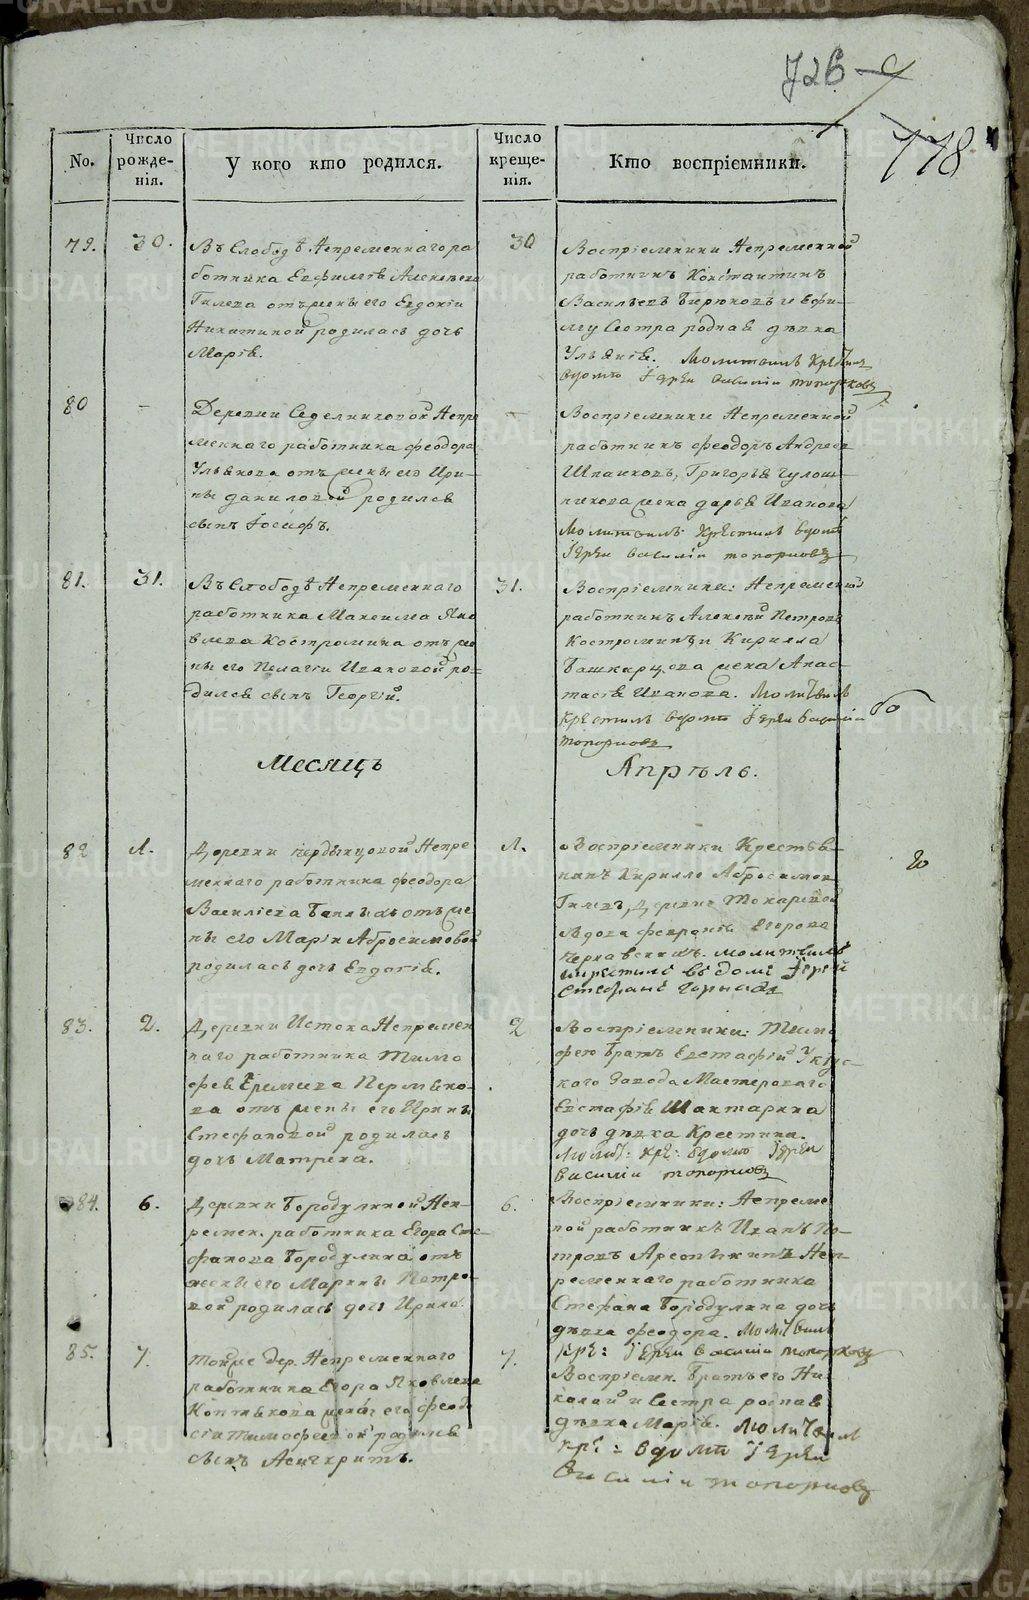 726
118
No.
Число рожде- нія.
У кого кто родился.
Число креще- нія.
Кто воспріемники.
79.
30.
Въ Слободѣ Непременнаго ра
ботника Евфимія Алексѣева
Гилева отъ жены его Евдокіи
Никитиной родилась дочь
Марія.
30
Воспріемники Непременной
работникъ Константинъ
Васильевъ Бирюковъ и Ефи-
му Сестра родная дѣвка
Ульянія. Молитвилъ Крѣстилъ
вдомѣ Іерей василіи топорковъ
80
Деревни Седелниковой Непре
меннаго работника феодора
Ульянова отъ жены его Ири-
ны даниловой родился
сынъ Іосифъ.
Воспріемники Непременной
работникъ феодоръ Андреевъ
Григорья
жена дарья Иванова
Молитвилъ Крѣстилъ вдомѣ
Іерей василіи топорковъ
81.
31.
Въ Слободѣ Непременнаго
работника Максима Яко
влева Костромина отъ же
ны его Пелагіи Ивановой ро=
дился сынъ Георгій.
31.
Воспріемники: Непременной
работникъ Алексѣй Петровъ
Костроминъ и Кирилла
Башкирцова жена Анас-
тасія Иванова. Молитвилъ
крѣстилъ вдомѣ Іерей Василіи
топорковъ
Месяцъ
Апрѣль.
82
1.
Деревни Непре
меннаго работника феодора
Василіева отъ же
ны его Маріи Абросимовой
родилась дочь Евдокія.
1.
Воспріемники Крестья-
нинъ Кирилло Абросимовъ
Гилевъ, Деревни Токаревой
вдова феврониѧ Егорова
молитвилъ
икрѣстилъ въ домѣ Іерей
Стефанъ
83.
2.
Деревни Истока Непремен
наго работника Тимо
фея Еремѣева Пермяко-
ва отъ жены его Ирины
Стефановой родилась
дочь Матрена.
2
Воспріемники: Тимо
фею братъ Евстафій Уктус-
каго Завода Мастероваго
Евстафія Шахтарина
дочь дѣвка Крестина.
Молит: крѣ: вдомѣ Іерей
василіи топорковъ
84.
6.
Деревни Бородулиной Неп-
ремен. работника Егора Сте-
фанова Бородулина отъ
жены его Марины Петро-
вой родилась дочь Ирина.
6.
Воспріемники: Непреме
ной работникъ Иванъ Пе-
тровъ Неп-
ременнаго работника
Стефана Бородулина дочь
дѣвка феодора. Молитвилъ
крѣ: Іерей василіи топорковъ
85.
7.
Тояже дер. Непременнаго
работника Егора Яковлева
жены его феодо
сіи Тимофеевой родился
сынъ Асигкритъ.
7.
Воспріемн. Братъ его Ни
колай и Сестра родная
дѣвка Марія. Молитвилъ
крѣ: вдомѣ Іерей
Василіи топорковъ